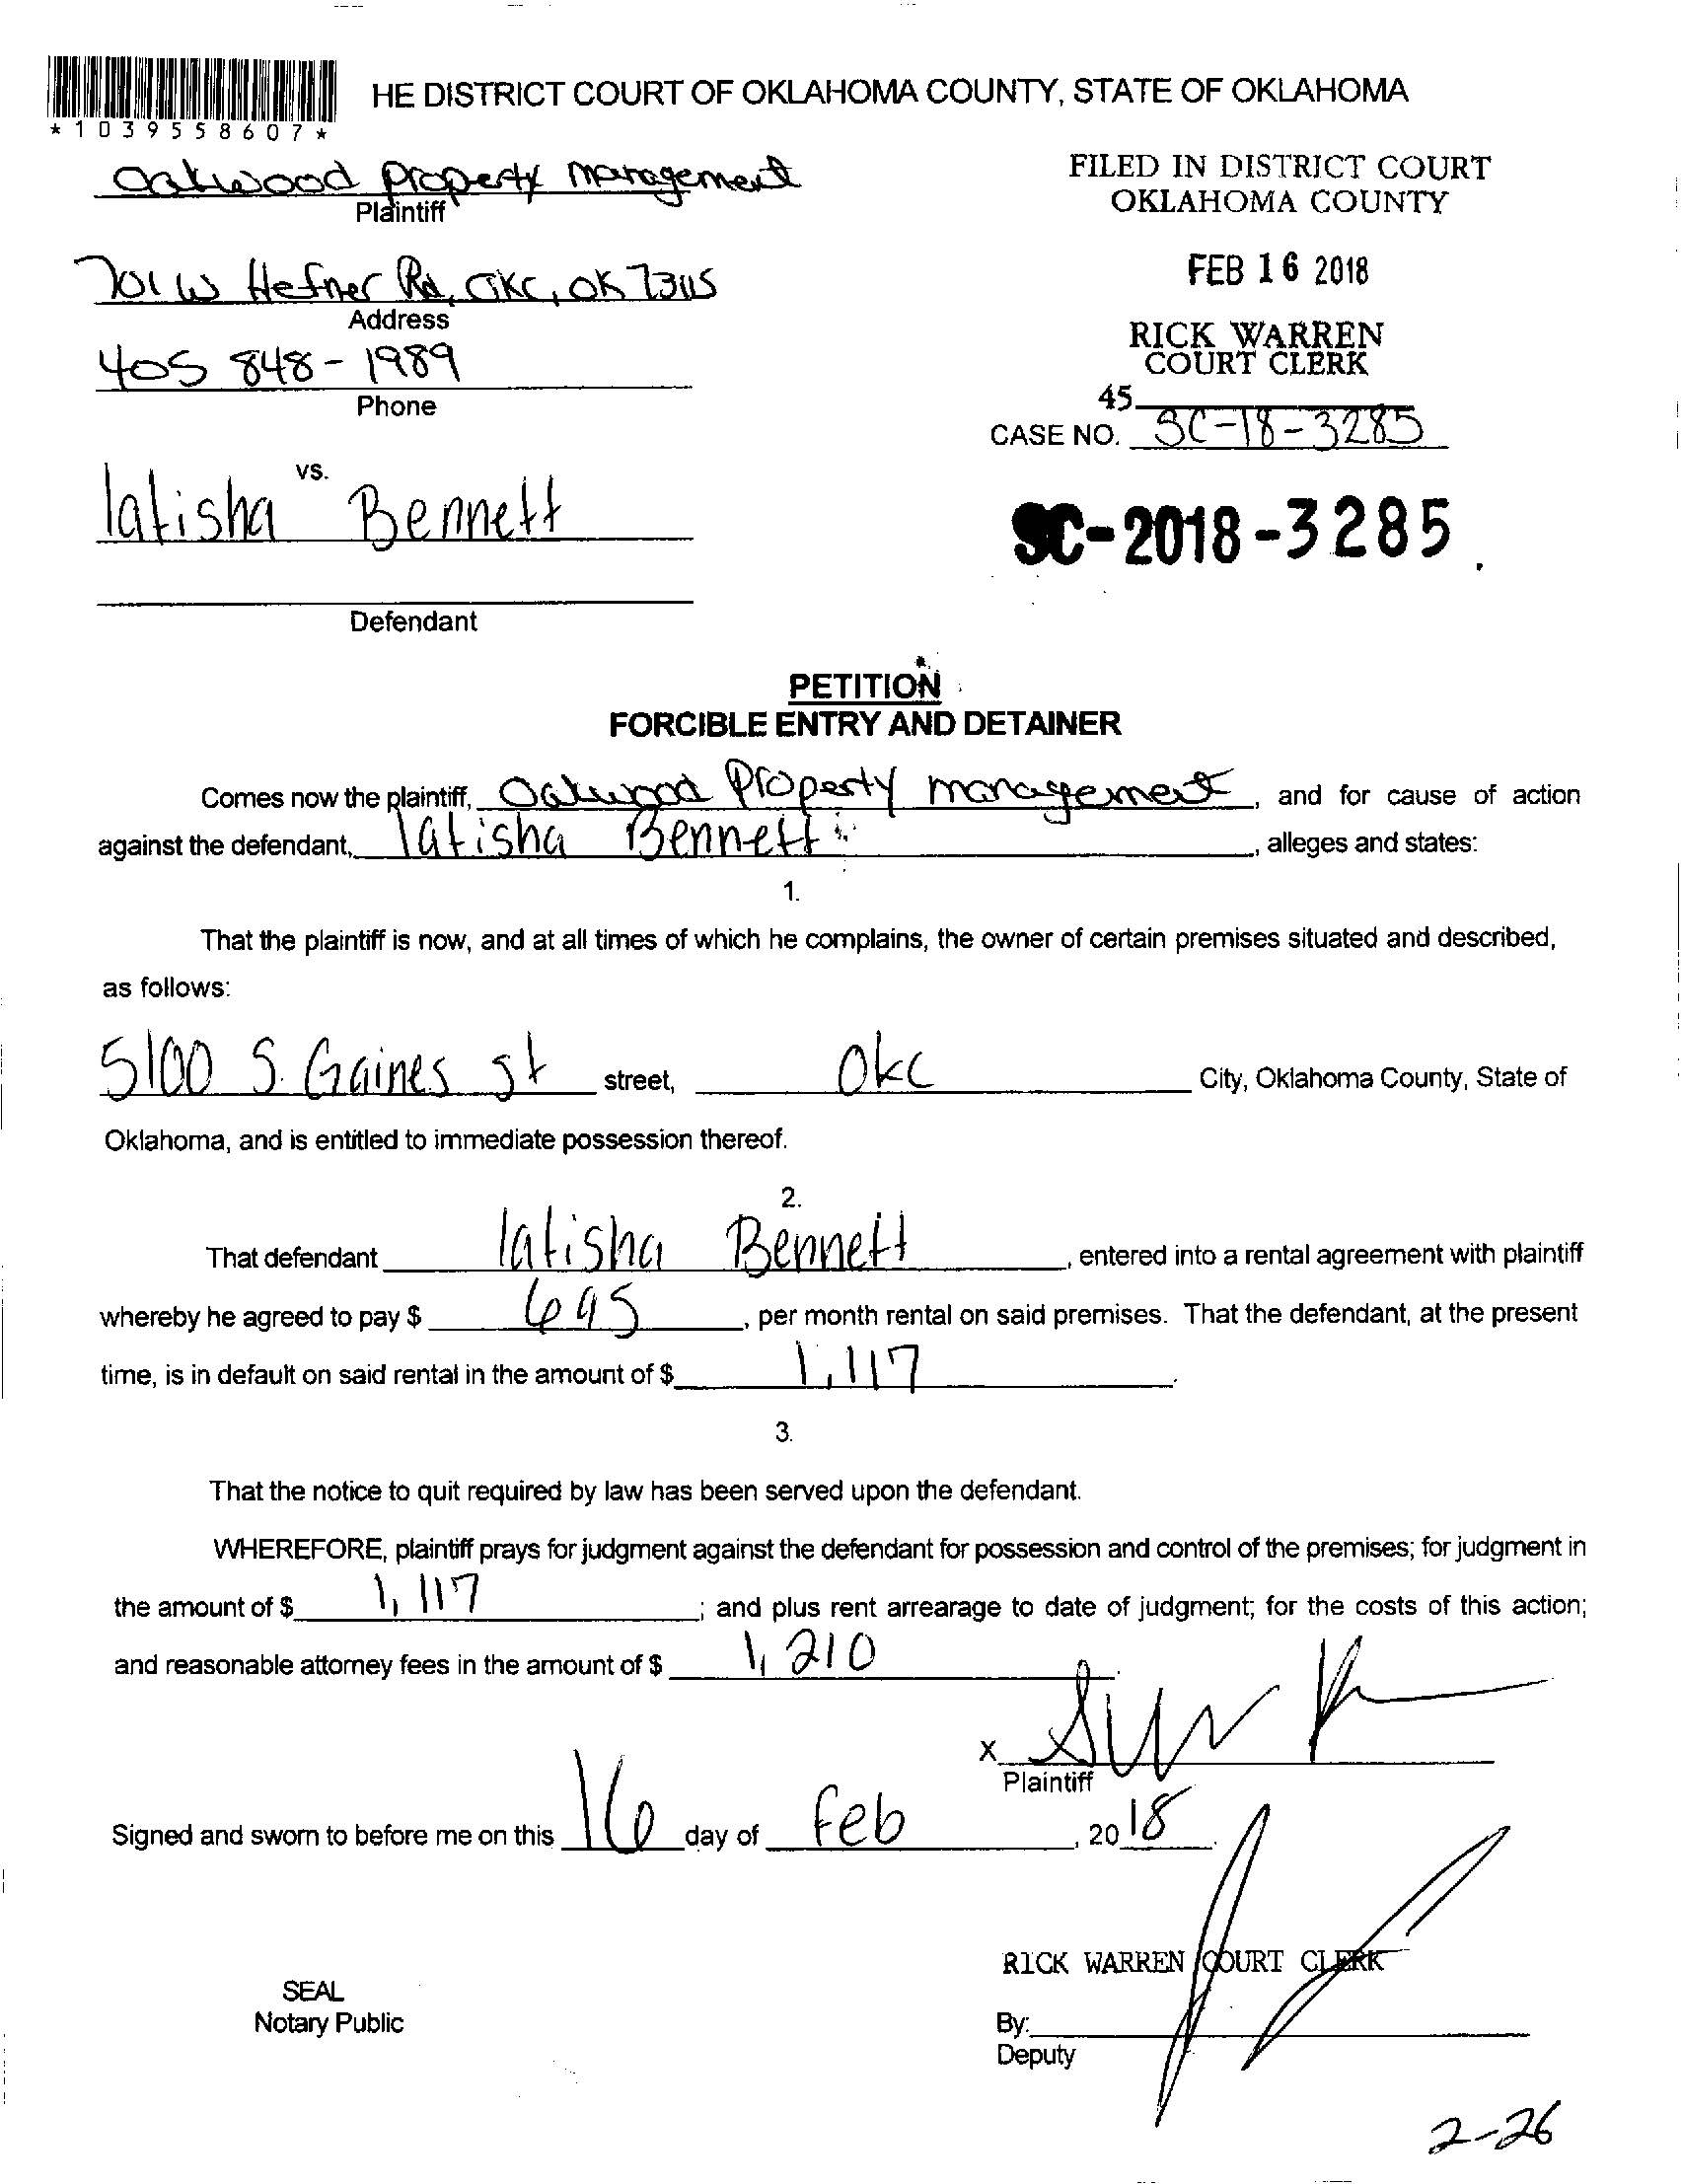 HE DISTRICT COURT OF OKLAHOMA COUNTY, STATE OF OKLAHOMA
*1039558607*
Oakwood Property Management
Plaintiff
FILED IN DISTRICT COURT
OKLAHOMA COUNTY
701 W Hefner Rd, OKC, OK 73115
Address
FEB 16 2018
405 848-1989
Phone
RICK WARREN
COURT CLERK
45
CASE NO. SC-18-3285
vs.
latisha Bennett
SC-2018-3285
Defendant
PETITION
FORCIBLE ENTRY AND DETAINER
Comes now the plaintiff, Oakwood Property management, and for cause of action
against the defendant, latisha Bennett, alleges and states:
1.
That the plaintiff is now, and at all times of which he complains, the owner of certain premises situated and described,
as follows:
5100 S. Gaines st street, Okc City, Oklahoma County, State of
Oklahoma, and is entitled to immediate possession thereof.
2.
That defendant latisha Bennett, entered into a rental agreement with plaintiff
whereby he agreed to pay $ 695, per month rental on said premises. That the defendant, at the present
time, is in default on said rental in the amount of $ 1,117.
3.
That the notice to quit required by law has been served upon the defendant.
WHEREFORE, plaintiff prays for judgment against the defendant for possession and control of the premises; for judgment in
the amount of $ 1,117; and plus rent arrearage to date of judgment; for the costs of this action;
and reasonable attorney fees in the amount of $ 1,210.
X
Plaintiff
Signed and sworn to before me on this 16 day of feb, 2018.
RICK WARREN COURT CLERK
SEAL
Notary Public
By:
Deputy
2-26